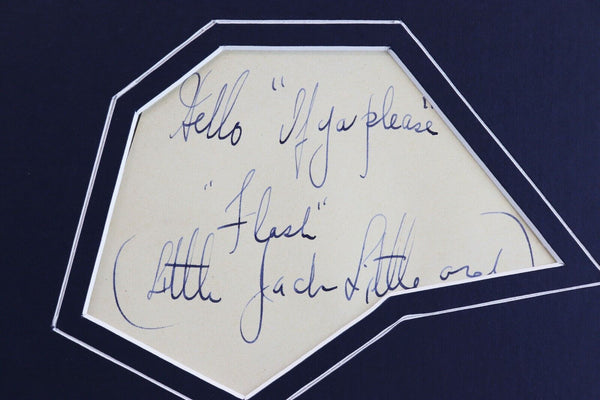 Hello "If ya please"
"Flash"
(Little Jack Little orch)